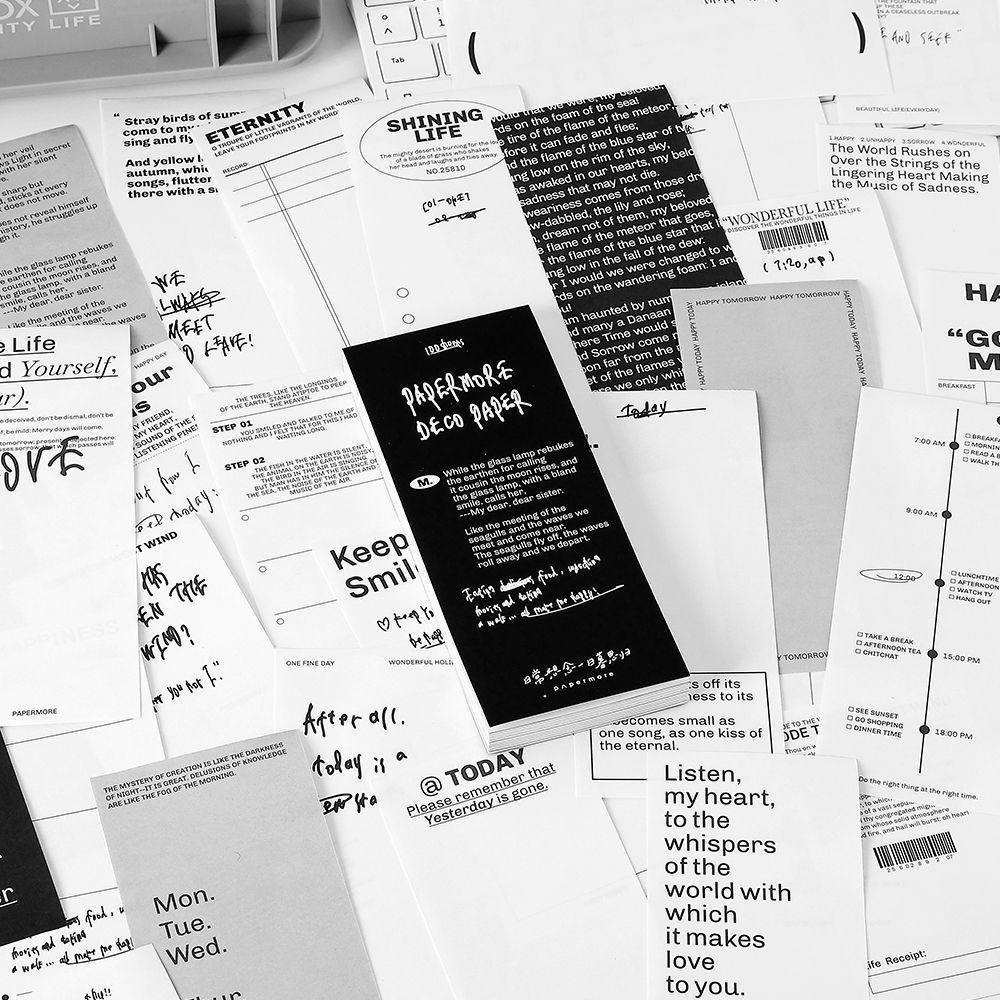 OX
ITY LIFE
Tab
(
)
IN A CEASELESS OUTBREAK
AND SEEK"
BEAUTIFUL LIFE(EVERYDAY)
1.HAPPY 2.UNHAPPY 3.SORROW 4.WONDERFUL
The World Rushes on
Over the Strings of the
Lingering Heart Making
the Music of Sadness.
"Stray birds of sum
come to my
sing and fly
And yellow l
autumn, which
songs, flutter
there with a s
ETERNITY
O TROUPE OF LITTLE VAGRANTS OF THE WORLD,
LEAVE YOUR FOOTPRINTS IN MY WORD
RECORD:
SHINING
LIFE
The mighty desert is burning for the lov
of a blade of grass who shakes
her head and laughs and flies away.
NO.25810
ds on the foam of the sea!
re of the flame of the meteor,
ore it can fade and flee;
d the flame of the blue star of tw
ng low on the rim of the sky,
as awaked in our hearts, my belo
sadness that may not die.
weariness comes from those dr
w-dabbled, the lily and rose;
dream not of them, my beloved
e flame of the meteor that goes,
e flame of the blue star that
ng low in the fall of the dew:
r I would we were changed to w
ds on the wandering foam: I and
am haunted by num
and many a Danaan
here Time would s
d Sorrow come
on far from the
et of the flames
ce we only whi
"WONDERFUL LIFE"
DISCOVER THE WONDERFUL THINGS IN LIFE
her veil
light in secret
with her silent
sharp but
sticks at every
does not move.
es not reveal himself
history, he struggles up
gh it.
hile the glass lamp rebukes
e earthen for calling
cousin the moon rises, and
he glass lamp, with a bland
smile, calls her.
---My dear, dear sister.
Like the meeting of the
WE
ALWAYS
MEET
LEAVE!
HAPPY TOMORROW HAPPY TOMORROW
HAPPY TODAY HAPPY TODAY
HAPPY TODAY HAPPY TODAY HAPPY TODAY
Y TOMORROW
HA
"GO
M
BREAKFAST
e Life
d Yourself,
ur).
e deceived, don't be dismal, don't be
d, be mild: Merry days will come,
OVE
PAPERMORE
HAPPY DAY
our
MY FRIEND,
MY HEART
SOUND OF THE
LISTENING PINES
T WIND
THE TREES, LIKE THE LONGINGS
OF THE EARTH, STAND ATIPTOE TO PEEP
THE HEAVEN.
STEP 01
YOU SMILED AND TALKED TO ME OF
NOTHING AND I FELT THAT FOR THIS I HAD
WAITING LONG.
STEP 02
THE FISH IN THE WATER IS SILENT,
THE ANIMAL ON THE EARTH IS NOISY,
THE BIRD IN THE AIR IS SINGING
BUT MAN HAS IN HIM THE SILENCE OF
THE SEA, THE NOISE OF THE EARTH AND
MUSIC OF THE AIR.
Keep
Smil
100 sheets
PAPERMORE
DECO PAPER
M.
While the glass lamp rebukes
the earthen for calling
it cousin the moon rises, and
the glass lamp, with a bland
smile, calls her.
---My dear, dear sister.
Like the meeting of the
seagulls and the waves we
meet and come near;
The seagulls fly off, the waves
roll away and we depart.
food,
movies and eating
a walk ... all make me happy!
papermore
today
7:00 AM
BREAKFA
MORNIN
READ A B
WALK TH
9:00 AM
12:00
LUNCHTIME
AFTERNOON
WATCH TV
HANG OUT
TAKE A BREAK
AFTERNOON TEA
CHITCHAT
15:00 PM
SEE SUNSET
GO SHOPPING
DINNER TIME
18:00 PM
Do the right thing at the right time.
ONE FINE DAY
WONDERFUL HOLI
After all.
today is a
ts off its
ness to its
becomes small as
one song, as one kiss of
the eternal.
@ TODAY
Please remember that
Yesterday is gone.
THE MYSTERY OF CREATION IS LIKE THE DARKNESS
OF NIGHT--IT IS GREAT. DELUSIONS OF KNOWLEDGE
ARE LIKE THE FOG OF THE MORNING.
Mon.
Tue.
Wed.
Thur
Listen,
my heart,
to the
whispers
of the
world with
which
it makes
love
to you.
of a vast sepu
whose solid atmosphere
and hail will burst: oh hear!
life Receipt:
food,
movies and eating
a walk ... all make me happy!